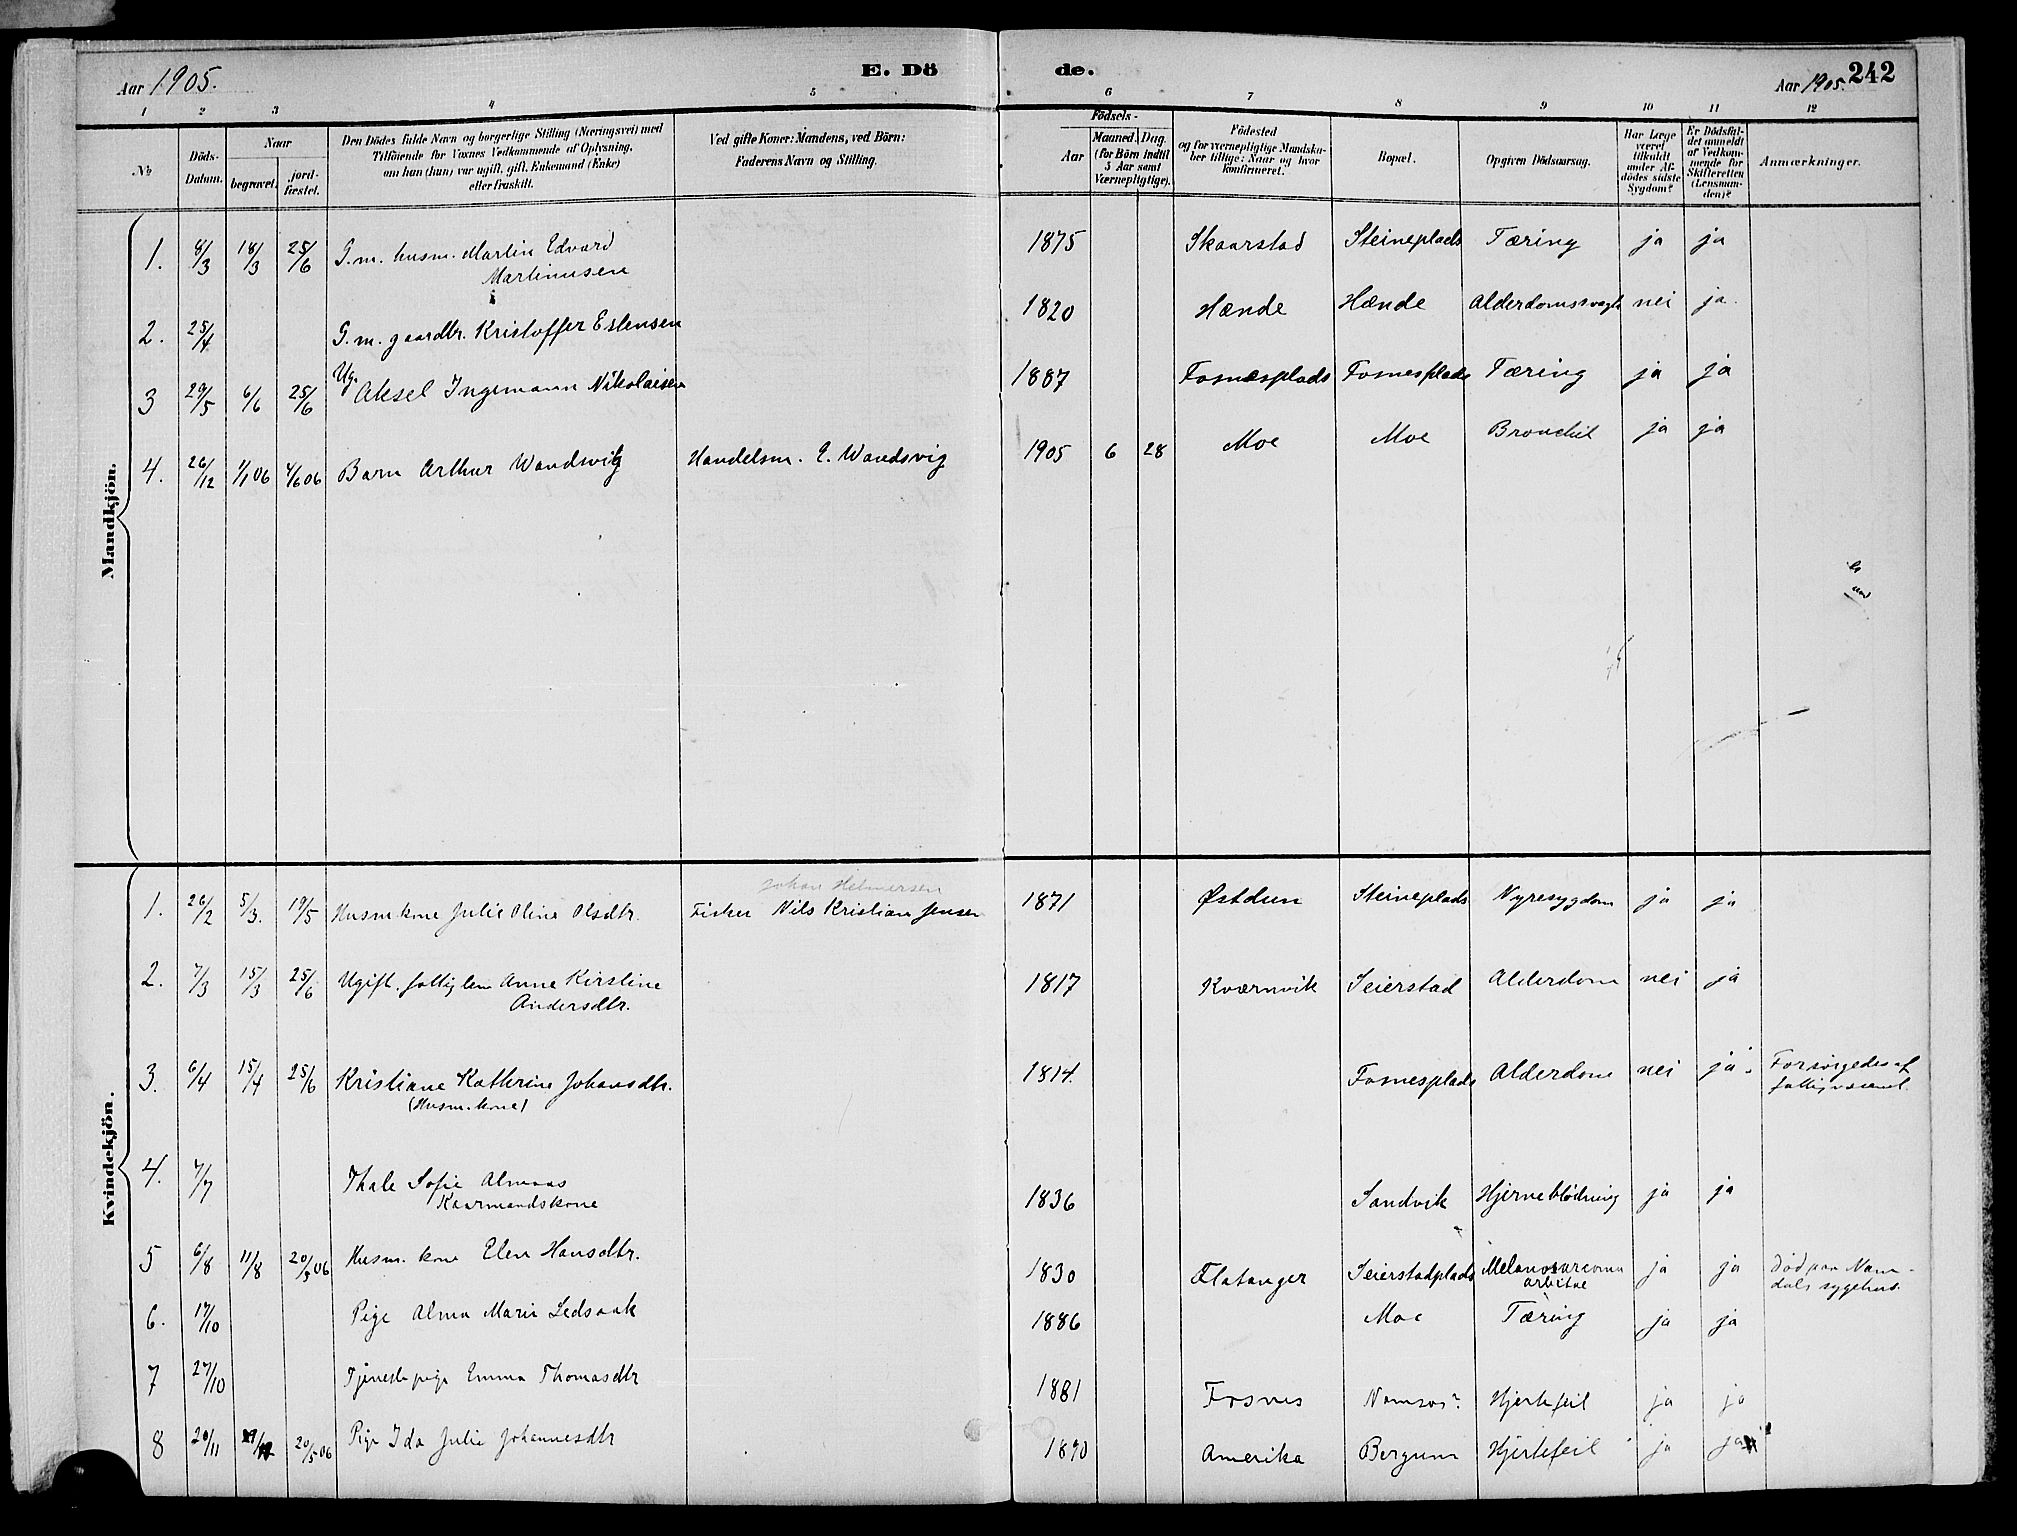 Aar 1905. E. Dö de. Aar 1905. 242
1 2 3 4 5 6 7 8 9 10 11 12
No
Döds-
Datum.
Naar
begravet.
jord-
fæstet.
Den Dödes fulde Navn og borgerlige Stilling (Næringsvei) med
Tilföiende for Voxnes Vedkommende af Oplysning,
om han (hun) var ugift, gift, Enkemand (Enke)
eller fraskilt.
Ved gifte Koner: Mandens, ved Börn:
Faderens Navn og Stilling.
Födsels-
Aar
Maaned. Dag.
(for Börn indtil
5 Aar samt
Værnepligtige).
Födested
og for værnepligtige Mandska-
ber tillige: Naar og hvor
konfirmeret.
Bopæl.
Opgiven Dödsaarsag.
Har Læge
været
tilkaldt
under Af-
dödes sidste
Sygdom?
Er Dödsfal-
det anmeldt
af Vedkom-
mende for
Skifteretten
(Lensman-
den)?
Anmærkninger.
Mandkjön.
1. 8/3 18/3 25/6 G.m. husm. Martin Edvard 1875 Skaarstad Steineplads Tæring ja ja
Martinusen
2. 25/4 G.m. gaardbr. Kristoffer Estensen 1820 Hænde Hænde Alderdomssvagh nei ja
3 29/5 6/6 25/6 Ug. Aksel Ingemann Nikolaisen 1887 Fosnesplads Fosnesplads Tæring ja ja
4. 26/12 1/1 06 4/6 06 Barn Arthur Wandsvig Handelsm. E. Wandsvig 1905 6 28 Moe Moe Bronchit ja ja
Kvindekjön.
Johan Helmersen
1. 26/2 5/3. 19/5 Husm.kone Julie Oline Olsdtr. Fisker Nils Kristian Jensen 1871 Østdun Steineplads Nyresygdom ja ja
2. 7/3 15/3 25/6 Ugift. fattiglem Anne Kirstine 1817 Kværnvik Seierstad Alderdom nei ja
Andersdtr.
3. 6/4 15/4 25/6 Kristiane Kathrine Johansdtr. 1814. Fosnesplads Alderdom nei ja. Forsørgedes af
(Husm.kone) fattigvæsenet.
4. 7/7 Thale Sofie Almaas 1836 Sandvik Hjerneblödning ja ja
Kaarmandskone
5 6/8 11/8 20/5 06 Husm. kone Elen Hansdtr. 1830 Flatanger Seierstadplads Melanosarcoma ja ja Död paa Nam-
orbitae dals sygehus.
6. 17/10 Pige Alma Marie Ledsaak 1886 Moe Tæring ja ja
7 27/10 Tjenestepige Emma Thomasdtr 1881 Fosnes Namsos Hjertefeil ja ja
8 20/11 20/5 06 Pige Ida Julie Johannesdtr 1890 Amerika Bergum Hjertefeil ja ja